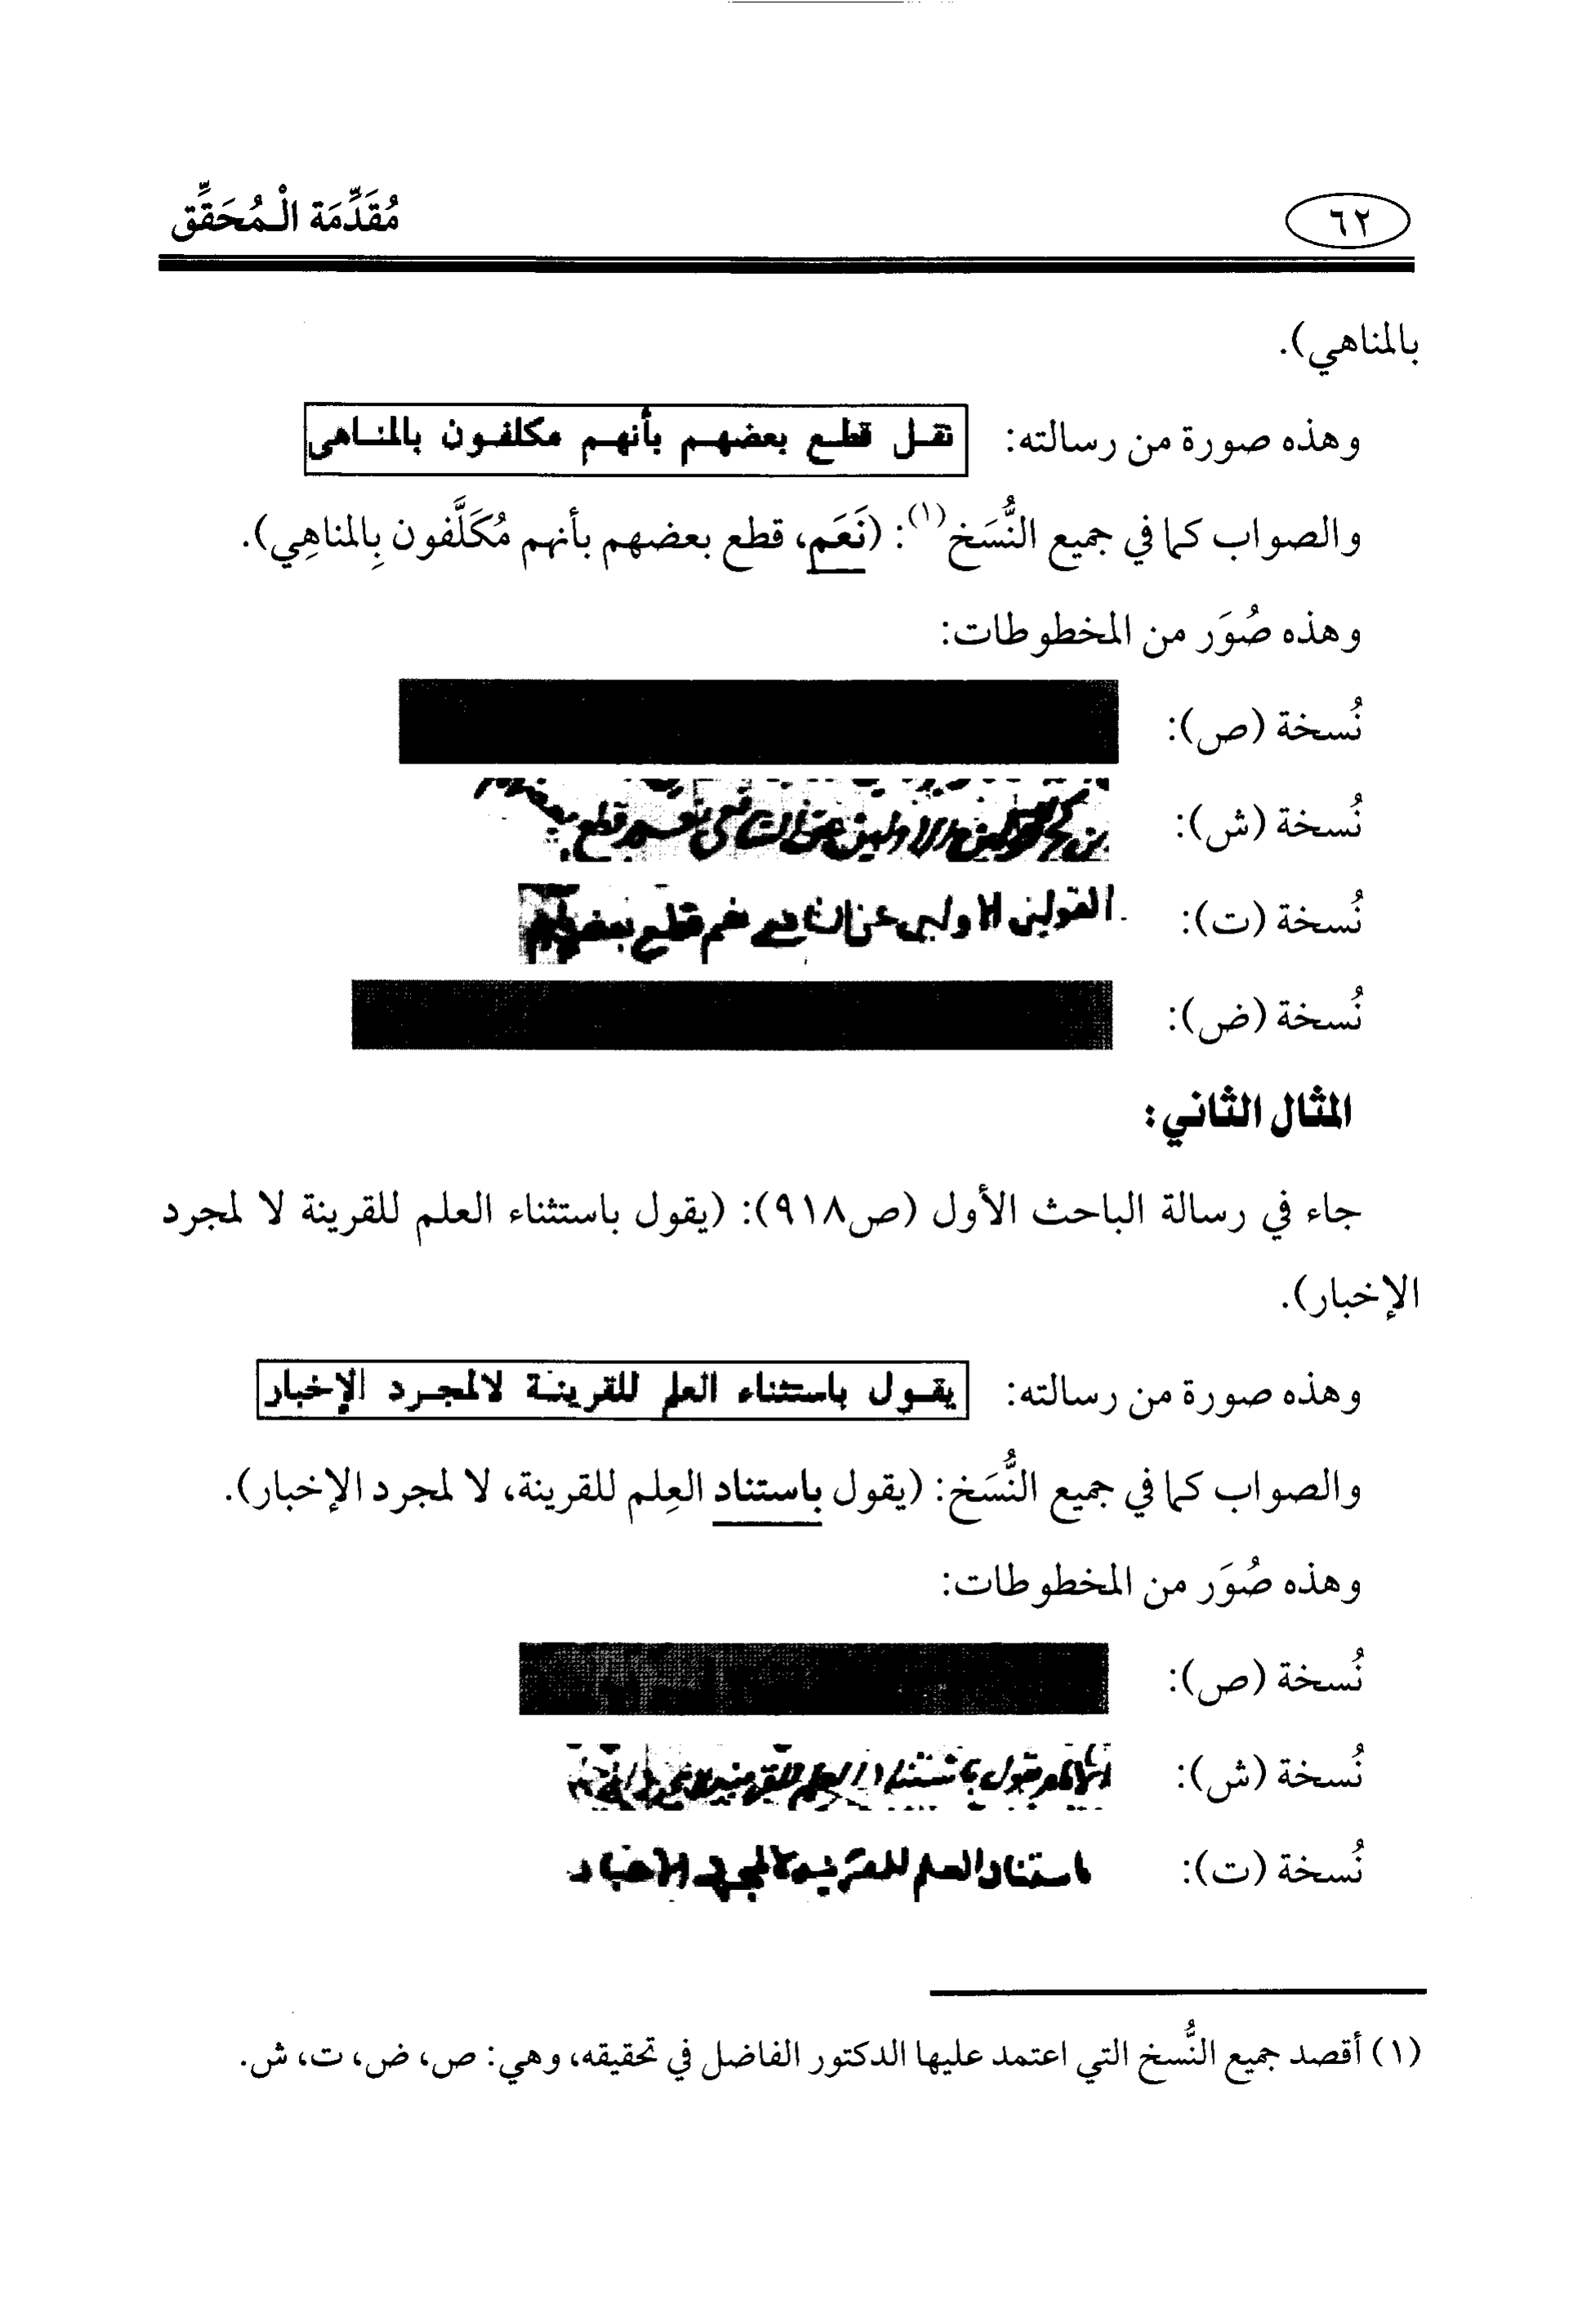 ٦٢
مُقَدِّمَة الْمُحَقِّق
بالمناهي).
وهذه صورة من رسالته: نقل قطع بعضهم بأنهم مكلفون بالمناهى
والصواب كما في جميع النُّسَخ(١): (نَعَم، قطع بعضهم بأنهم مُكَلَّفون بِالمناهِي).
وهذه صُوَر من المخطوطات:
نُسخة (ص):
نُسخة (ش): عن الشافعي نعم قطع
نُسخة (ت): القولين الاولين عن الشافعي نعم قطع بعضهم
نُسخة (ض):
المثال الثاني:
جاء في رسالة الباحث الأول (ص٩١٨): (يقول باستثناء العلم للقرينة لا لمجرد
الإخبار).
وهذه صورة من رسالته: يقول باستثناء العلم للقرينة لالمجرد الإخبار
والصواب كما في جميع النُّسَخ: (يقول باستناد العِلم للقرينة، لا لمجرد الإخبار).
وهذه صُوَر من المخطوطات:
نُسخة (ص):
نُسخة (ش): يقول باستناد العلم للقرينة
نُسخة (ت): باستناد العلم للقرينه لا لمجرد الاخبار
(١) أقصد جميع النُّسخ التي اعتمد عليها الدكتور الفاضل في تحقيقه، وهي: ص، ض، ت، ش.